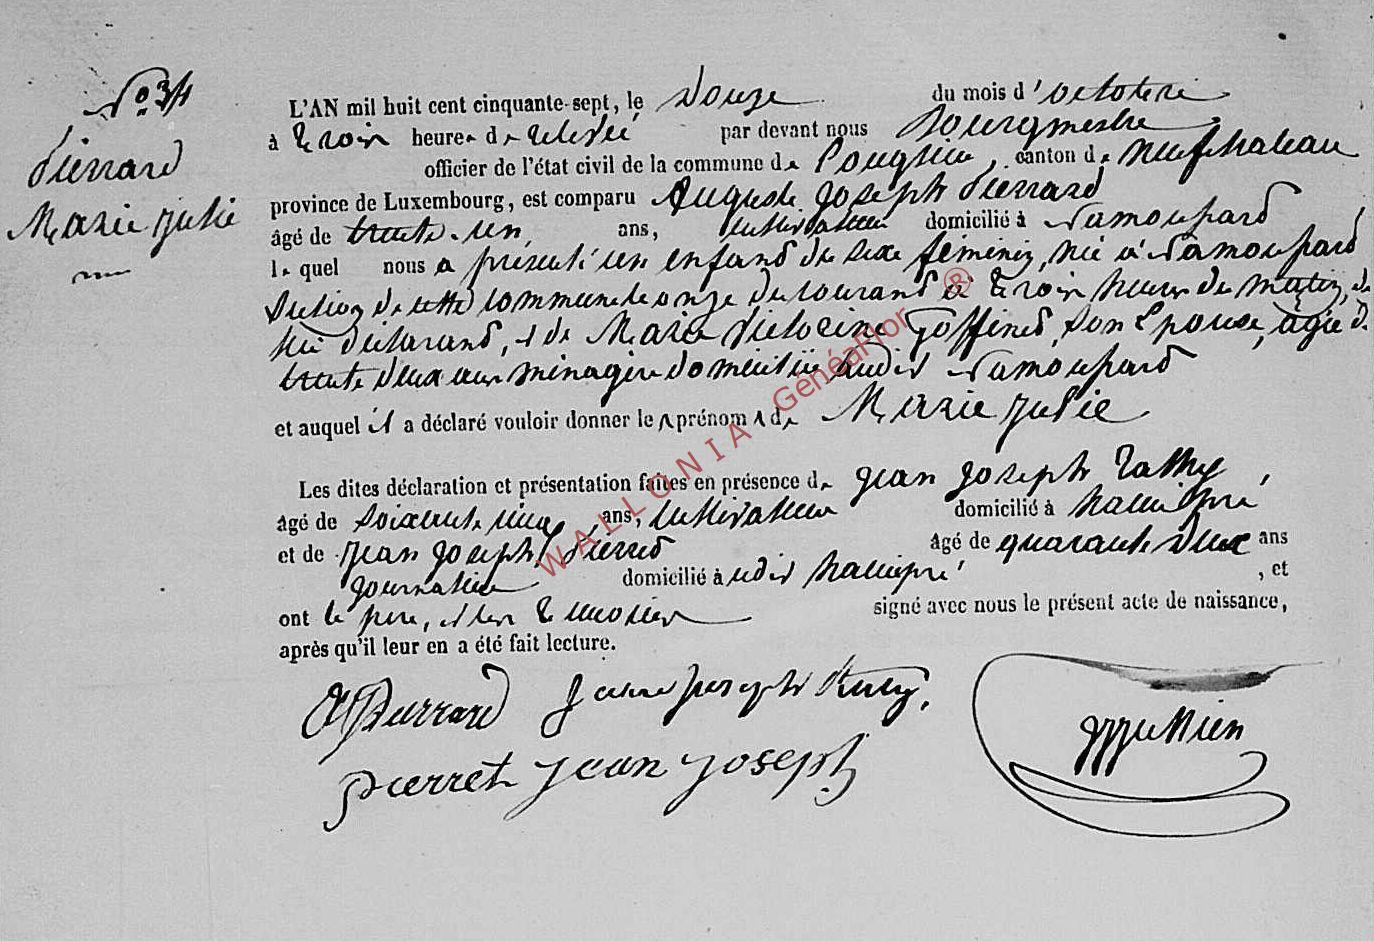 No 34
Pierrard
Marie Julie
L'AN mil huit cent cinquante-sept, le Douze du mois d'octobre
à trois heures de relevée par devant nous Bourgmestre
officier de l'état civil de la commune de Longlier, canton de Neufchateau
province de Luxembourg, est comparu Auguste Joseph Pierrard
âgé de trente-un ans, cultivateur domicilié à Namoussart
lequel nous a présenté un enfant du sexe féminin, née à Namoussart
section de cette commune le onze du courant à trois heures du matin, de
lui déclarant, et de Marie Victorine Goffinet, son épouse, âgée de
trente deux ans ménagère domiciliée audit Namoussart
et auquel il a déclaré vouloir donner les prénoms de Marie Julie
Les dites déclaration et présentation faites en présence de Jean Joseph
âgé de soixante cinq ans, cultivateur domicilié à hamipré
et de Jean Joseph Pierret âgé de quarante deux ans
journalier domicilié à udit hamipré , et
ont le père, et les témoins signé avec nous le présent acte de naissance,
après qu'il leur en a été fait lecture.
A J Pierrard Jean Joseph
pierret jean joseph
WALLONIA GénéaFlor ®